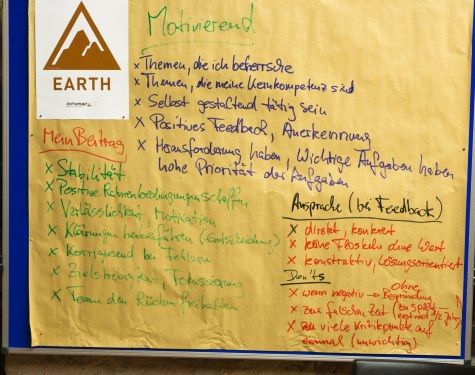 EARTH
Motivierend
x Themen, die ich beherrsche
x Themen, die meine Kernkompetenz sind
x Selbst gestaltend tätig sein
x Positives Feedback, Anerkennung
x Herausforderung haben, Wichtige Aufgaben haben
hohe Priorität der Aufgaben
Mein Beitrag
x Stabilität
x Positive Rahmenbedingungen schaffen
x Verlässlichkeit, Motivation
x Klärungen herbeiführen (-Entscheidung)
x Korrigierend bei Fehlern
x Zielstrebigkeit, Fokussierung
x Team den Rücken freihalten
Ansprache (bei Feedback)
x direkt, konkret
x keine Floskeln ohne Wert
x konstruktiv, Lösungsorientiert
Don'ts
x wenn negativ → ohne Begründung
x zur falschen Zeit (zu spät, erst mal 1/2 Jahr)
x zu viele Kritikpunkte auf
einmal (unwichtig)